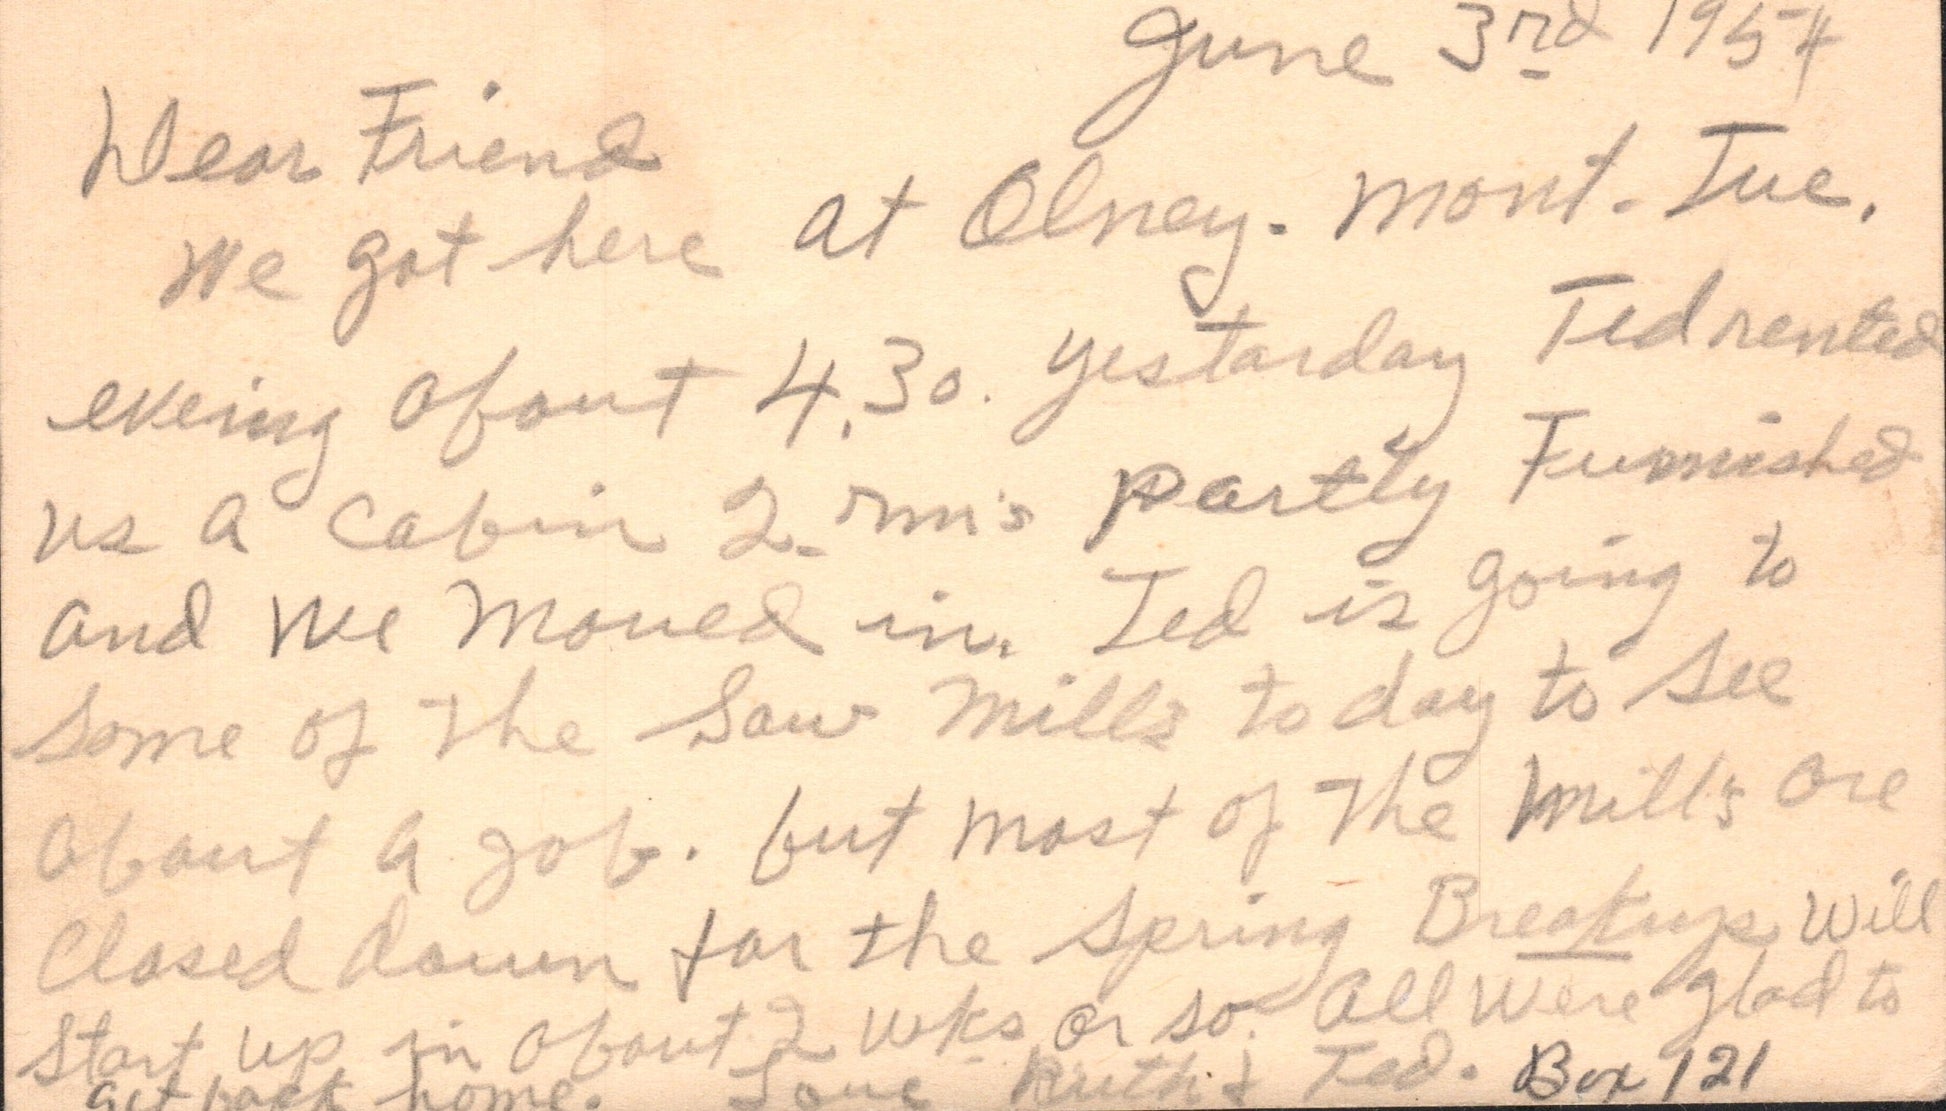 June 3rd 1954
Dear Friend
We got here at Olney. Mont. Tue.
eveing about 4.30. yestarday Ted rented
us a cabin 2 rm's partly Furnished
and we moved in. Ted is going to
some of the Saw Mills to day to see
about a job. but most of the Mills are
Closed down for the spring Breakups will
start up in about 2 wks or so. all were glad to
get back home. Love Ruth & Ted. Box 121